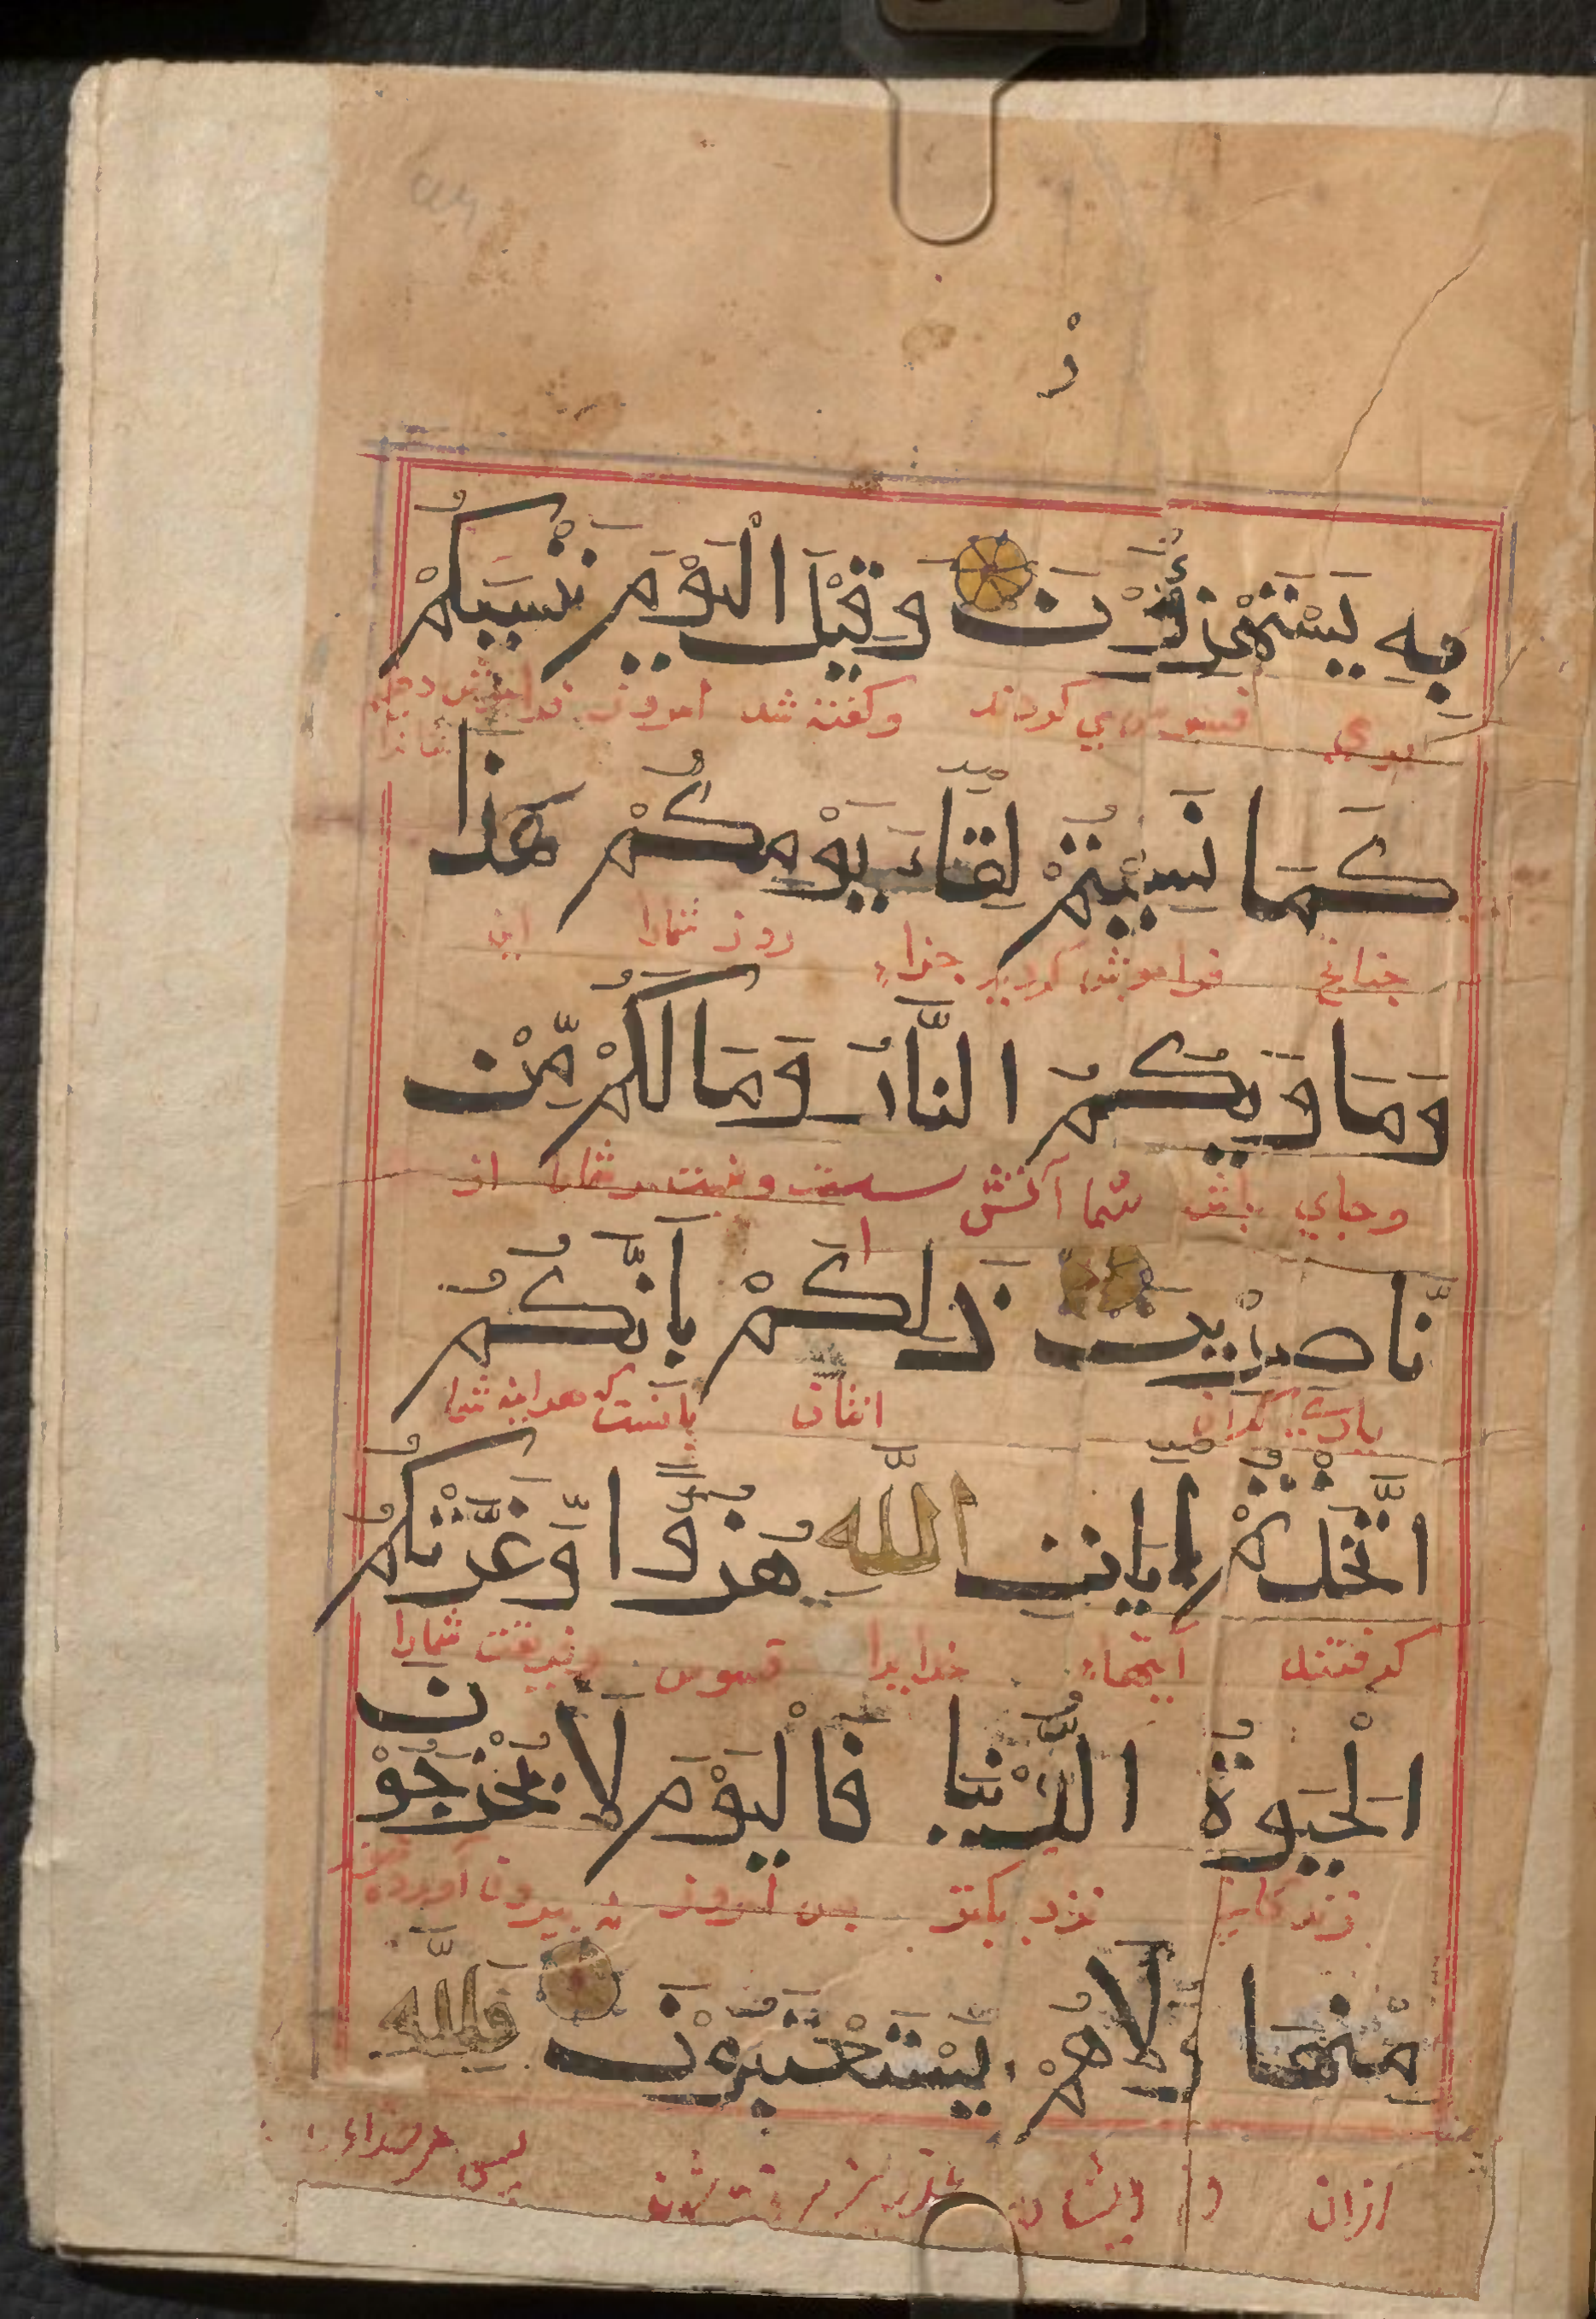 ز
بِهِ يَسْتَهْزِؤُنَ وَقِيْلَ الْيَوْمَ نَنْسٰيكُمْ
وكفته شد امروز فراموش دهيم شمارا
كَمَا نَسِيْتُمْ لِقَآءَ يَوْمِكُمْ هَذَا
چنانچ فراموش كرديد جزاء روز شمارا اين
وَمَاوٰيكُمُ النَّارُ وَمَا لَكُمْ مِّنْ
وجاي باش شما آتش است ونيست مر شمارا از
نَّاصِرِيْنَ ذٰلِكُمْ بِاَنَّكُمُ
ياري كران اينان بآنست كه هراينه شما
اتَّخَذْتُمْ اٰيَاتِ اللّٰهِ هُزُوًا وَّغَرَّتْكُمُ
كرفتند آيتهاء خدايرا فسوس وفريفت شمارا
الْحَيٰوةُ الدُّنْيَا فَالْيَوْمَ لَا يُخْرَجُوْنَ
زندكاني نزديكتر پس امروز نه بيرون آورده
مِنْهَا وَلَا هُمْ يُسْتَعْتَبُوْنَ فَلِلّٰهِ
ازان و ايشان پس مر خداء